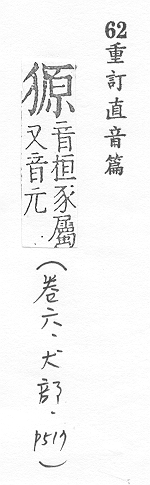 62重訂直音篇
獂音桓豕屬又音元
(卷六·犬部·p517)